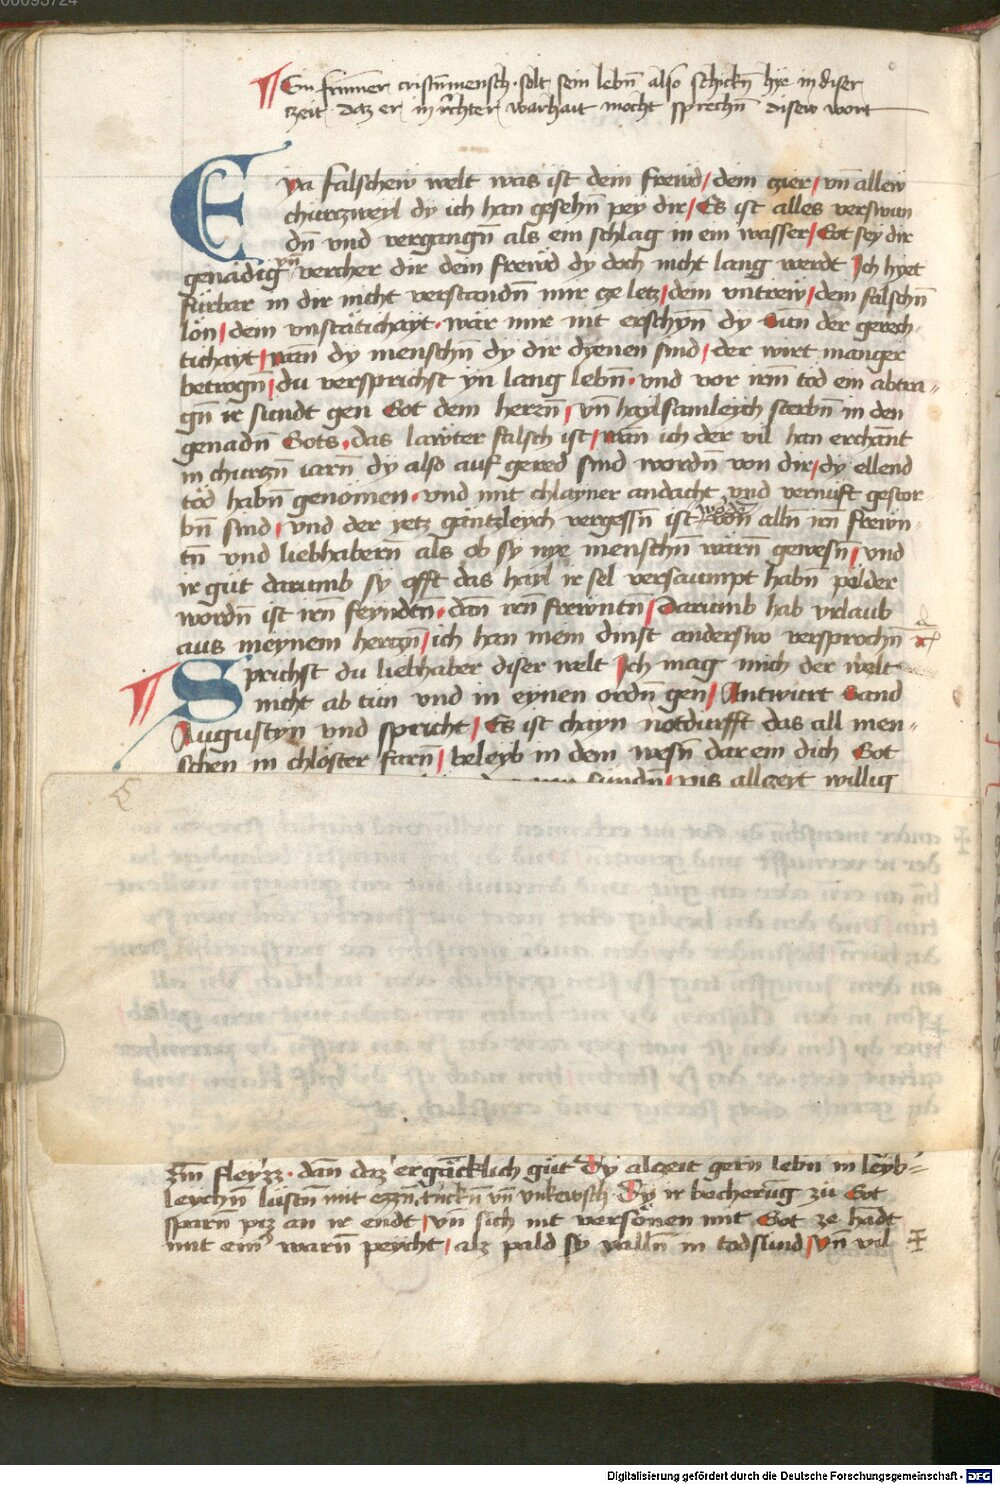 00093724
¶ Ein frumer cristenmensch · solt sein lebñ also schickñ hye in diser
zeit · daz er in rechter warhait mocht sprechñ disew wort
Eya falschew welt was ist dein frewd / dein zier / vñ allew
churczweyl dy ich han gesehñ pey dir / Es ist alles verswun
dñ vnd vergangñ als ein schlag in ein wasser / Got sey dir
genädig vñ vercher dir dein frewd dy doch nicht lang werdt Ich hyet
fürbar in dir nicht verstandñ mir ze letz / dein vntrew / dein falschñ
lön / dein vnstätichayt · wär mir nit erschynñ dy Sun der gerech-
tichayt / wañ dy menschñ dy dir dyenen sind / der wirt manger
betrogñ / du versprichst yn lang lebñ · vnd vor irm tod ein abtra-
gñ ir sundt gen Got dem hereñ / vñ haylsamleych sterbñ in den
genadñ Gots · das lawter falsch ist / wañ ich der vil han erchant
in churczñ iarñ dy also auf gered sind wordñ von dir / dy ellend
töd habñ genomen · vnd mit chlayner andacht vnd vernuft gestor-
bñ sind / vnd der yetz gantzleych vergessñ ist wordñ von allñ irñ frewn-
tñ vnd liebhaberñ als ob sy nye menschñ wärñ gewesñ / vnd
ir güt darumb sy offt das hayl ir sel versaumpt habñ pelder
wordñ ist irñ feyndtñ · dañ irñ frewntñ / Darumb hab vrlaub
aus meynem hertzñ / ich han mein dinst anderswo versprochñ
¶ Sprichst du liebhaber diser welt Ich mag mich der welt
nicht ab tün vnd in eynen ordñ gen / Antwurt Sand
Augustyn vnd spricht / Es ist chayn notdurfft das all men-
schen in chlöster farñ / beleyb in dem wesñ dar ein dich Got
sundñ / wis allczeyt willig
zm fleyzz · dañ daz ergäcklich güt Dy alczeit gern lebñ in leyb-
leychñ lüstñ mit ezzñ, trickñ vñ vnkewsch · Dy ir becherüg zü Got
sparñ piz an ir endt / vñ sich nit versönen mit Got ze hädt
mit eim warñ peycht / alz pald sy vallñ in todsünd / vñ vil
Digitalisierung gefördert durch die Deutsche Forschungsgemeinschaft - DFG